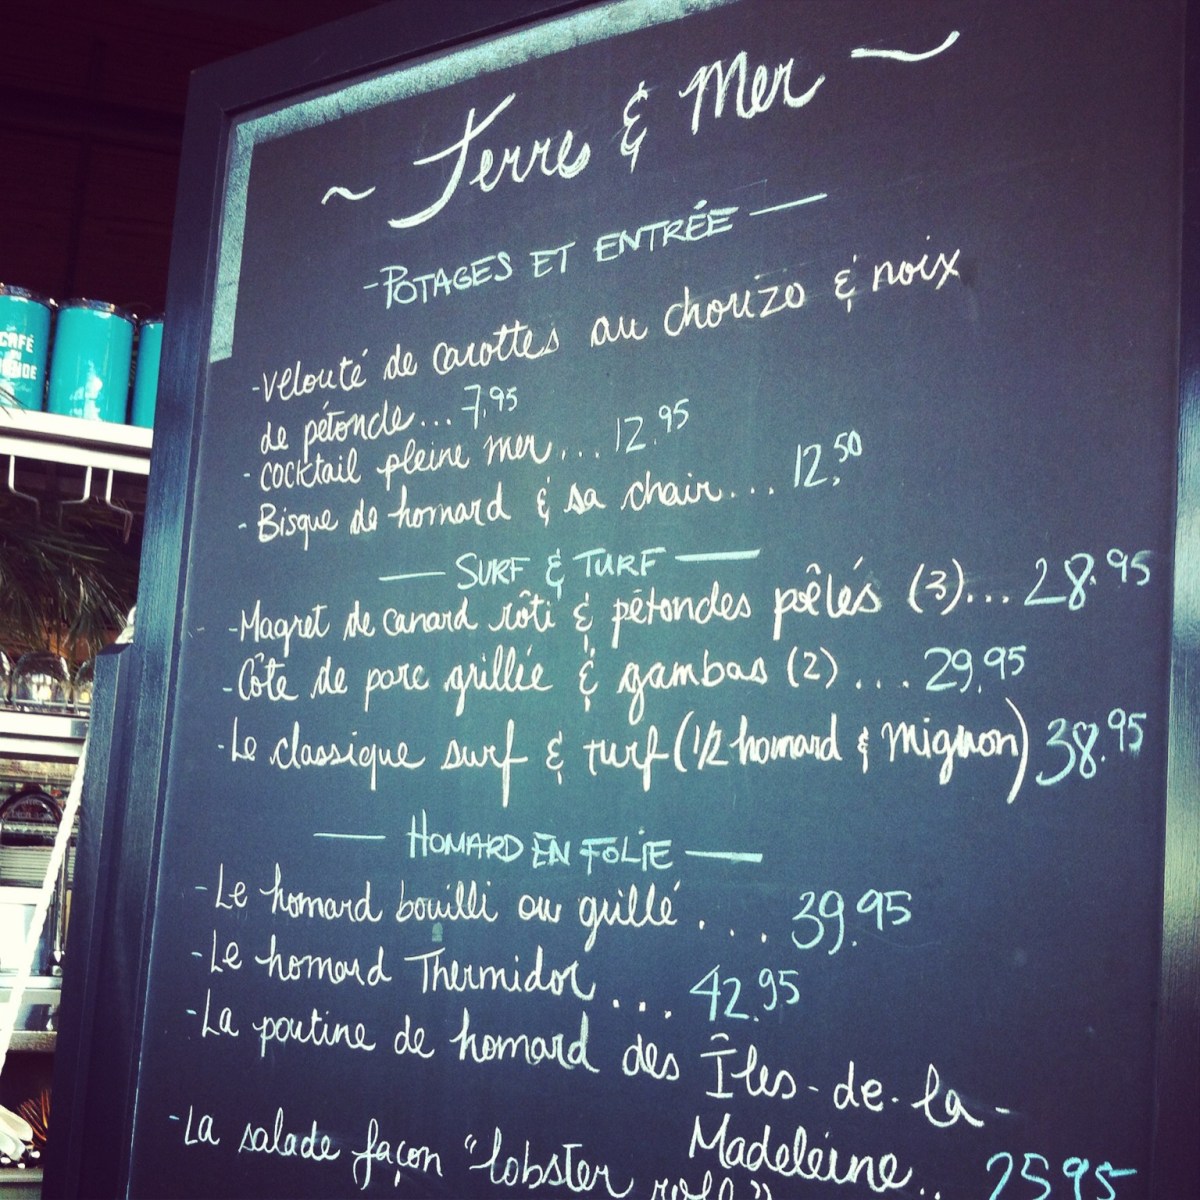 ~ Terre & Mer ~
- POTAGES ET ENTRÉE —
- Velouté de carottes au chorizo & noix
de pétoncle... 7.95
- Cocktail pleine mer... 12.95
- Bisque de homard & sa chair... 12.50
— SURF & TURF —
- Magret de canard rôti & pétoncles poêlés (3)... 28.95
- Côte de porc grillée & gambas (2)... 29.95
- Le classique surf & turf (1/2 homard & mignon) 38.95
— HOMARD EN FOLIE —
- Le homard bouilli ou grillé.... 39.95
- Le homard Thermidor.... 42.95
- La poutine de homard des Îles-de-la-
Madeleine.. 25.95
- La salade façon "lobster
roll"
CAFÉ
DU
MONDE